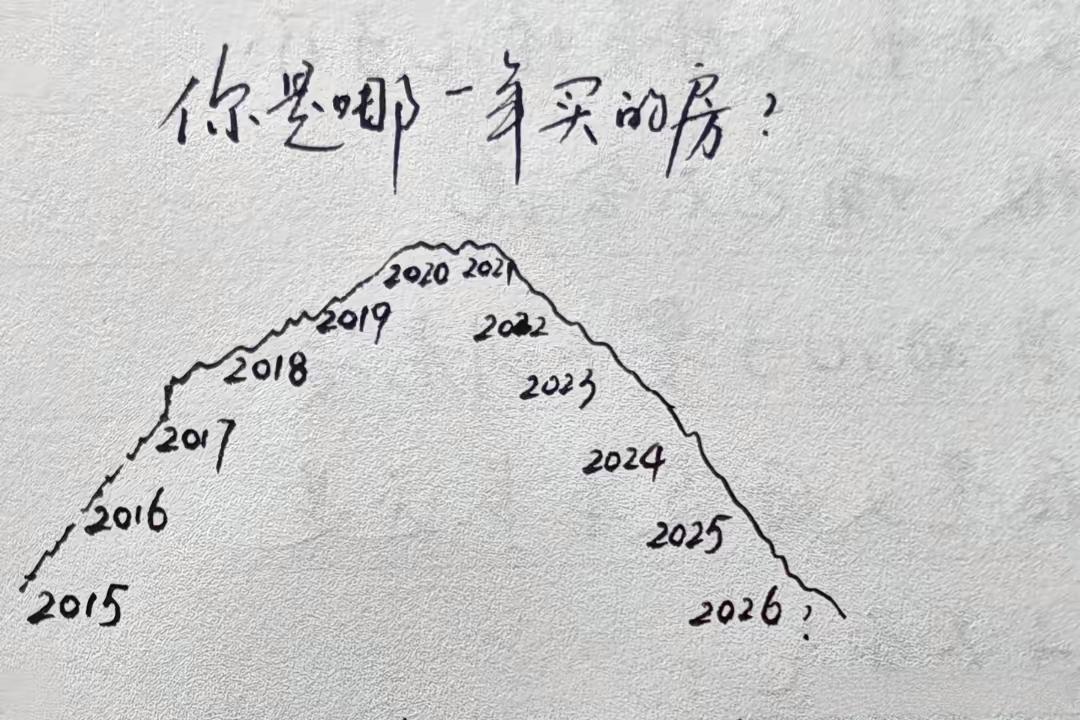 你是哪一年买的房?
2020 2021
2019
2022
2018
2023
2017
2024
2016
2025
2015
2026?